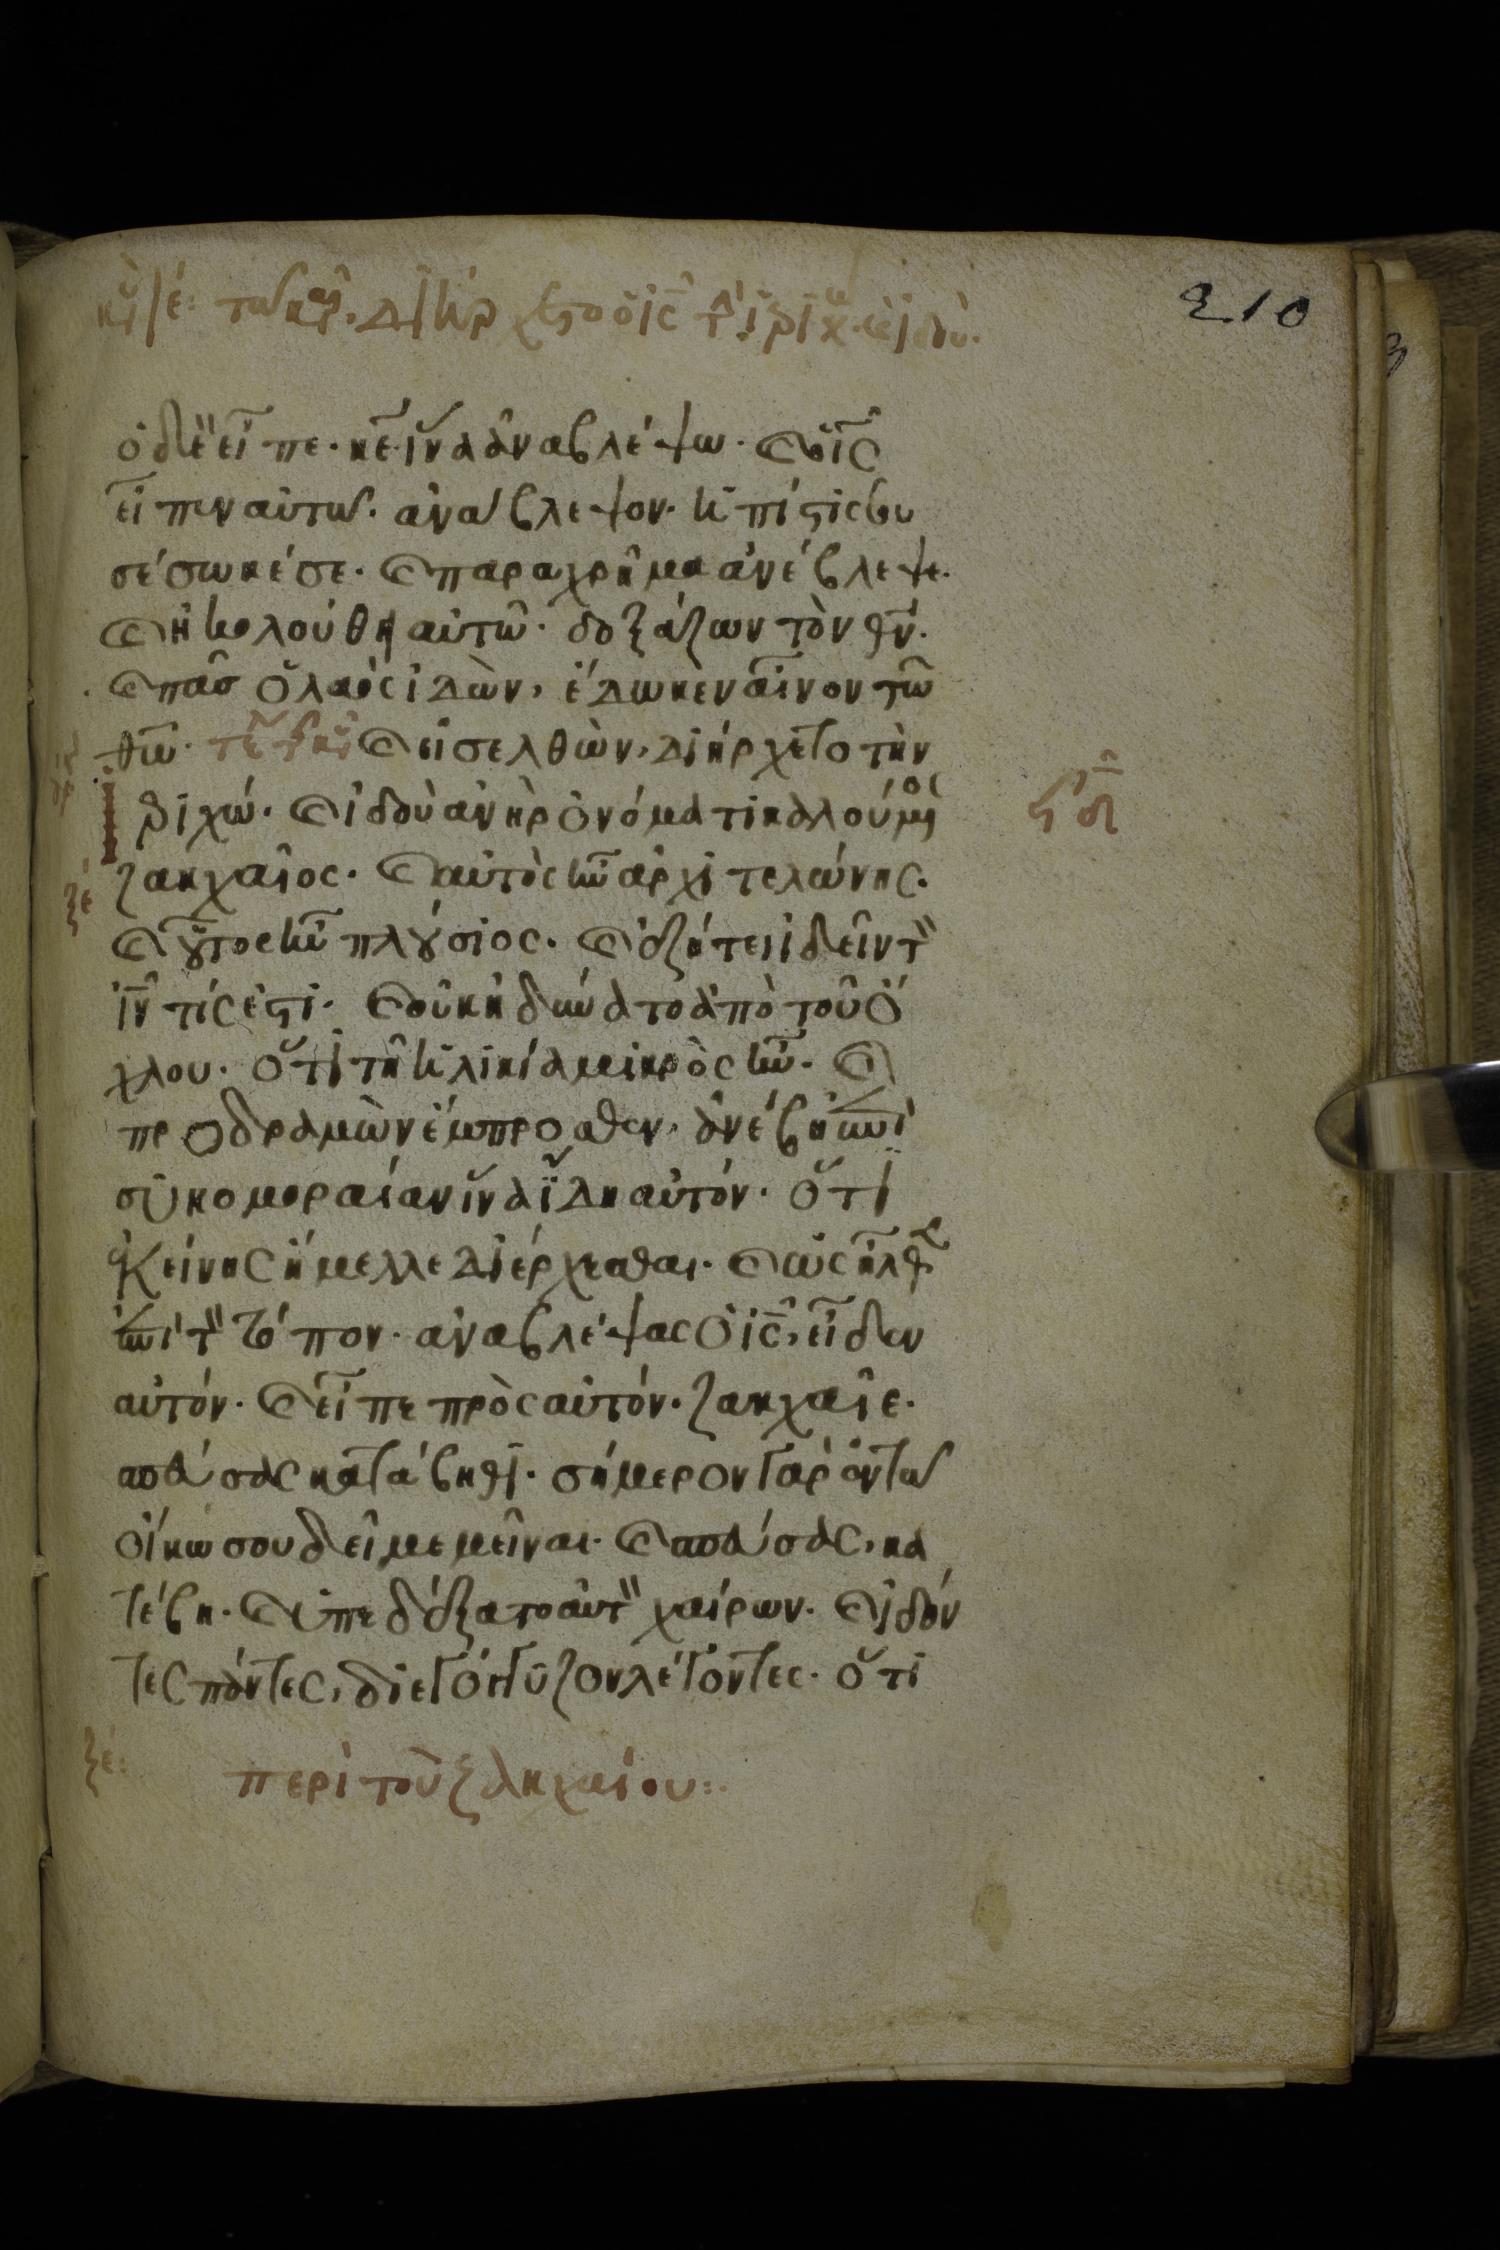 210
ὁ δὲ εἶπε· κε ἵνα ἀναβλέψω· καὶ ὁ ις
εἶπεν αὐτῶ· ἀνάβλεψον· ἡ πίστις σου
σέσωκέ σε· καὶ παραχρῆμα ἀνέβλεψε·
καὶ ἠκολούθη αὐτῶ· δοξάζων τὸν θν·
καὶ πᾶσ ὁ λαὸς ἰδὼν, ἔδωκεν αἶνον τῶ
θω· καὶ εἰσελθὼν, διήρχετο τὴν
ἱριχώ· καὶ ἰδοὺ ἀνὴρ ὀνόματι καλούμενος
ζακχαῖος· καὶ αὐτὸς ἦν ἀρχιτελώνης·
καὶ οὗτος ἦν πλούσιος· καὶ ἐζήτει ἰδεῖν τὸν
ιν τίς ἐστι· καὶ οὐκ ἠδύνατο ἀπὸ τοῦ ὄ
χλου· ὅτι τῆ ἡλικία μικρὸς ἦν· καὶ
προδραμὼν ἔμπροσθεν, ἀνέβη ἐπὶ
συκομοραίαν ἵνα ἴδη αὐτόν· ὅτι
ἐκείνης ἤμελλε διέρχεσθαι· καὶ ὡς ἦλθεν
ἐπὶ τὸν τόπον· ἀναβλέψας ὁ ις, εἶδεν
αὐτόν· καὶ εἶπε πρὸς αὐτόν· ζακχαῖε·
σπεύσας κατάβηθι· σήμερον γὰρ ἐν τῶ
οἴκω σου δεῖ με μεῖναι· καὶ σπεύσας, κα
τέβη· καὶ ὑπεδέξατο αὐτὸν χαίρων· καὶ ἰδόν
τες πάντες, διεγόγγυζον λέγοντες· ὅτι
ξε: περὶ τοῦ ζακχαίου: